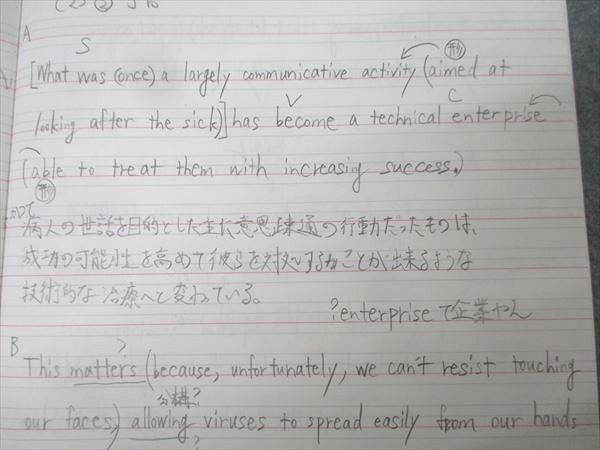 A
S
[What was (once) a largely communicative activity (aimed at
形
V
C
looking after the sick)] has become a technical enterprise
(able to treat them with increasing success.)
形
病人の世話を目的とした主な意思疎通の行動だったものは、
成功の可能性を高めて彼らを対処することが出来るような
技術的な治療へと変わっている。
?enterpriseで企業やん
B
?
This matters (because, unfortunately, we can't resist touching
分構?
our faces,) allowing viruses to spread easily from our hands
?